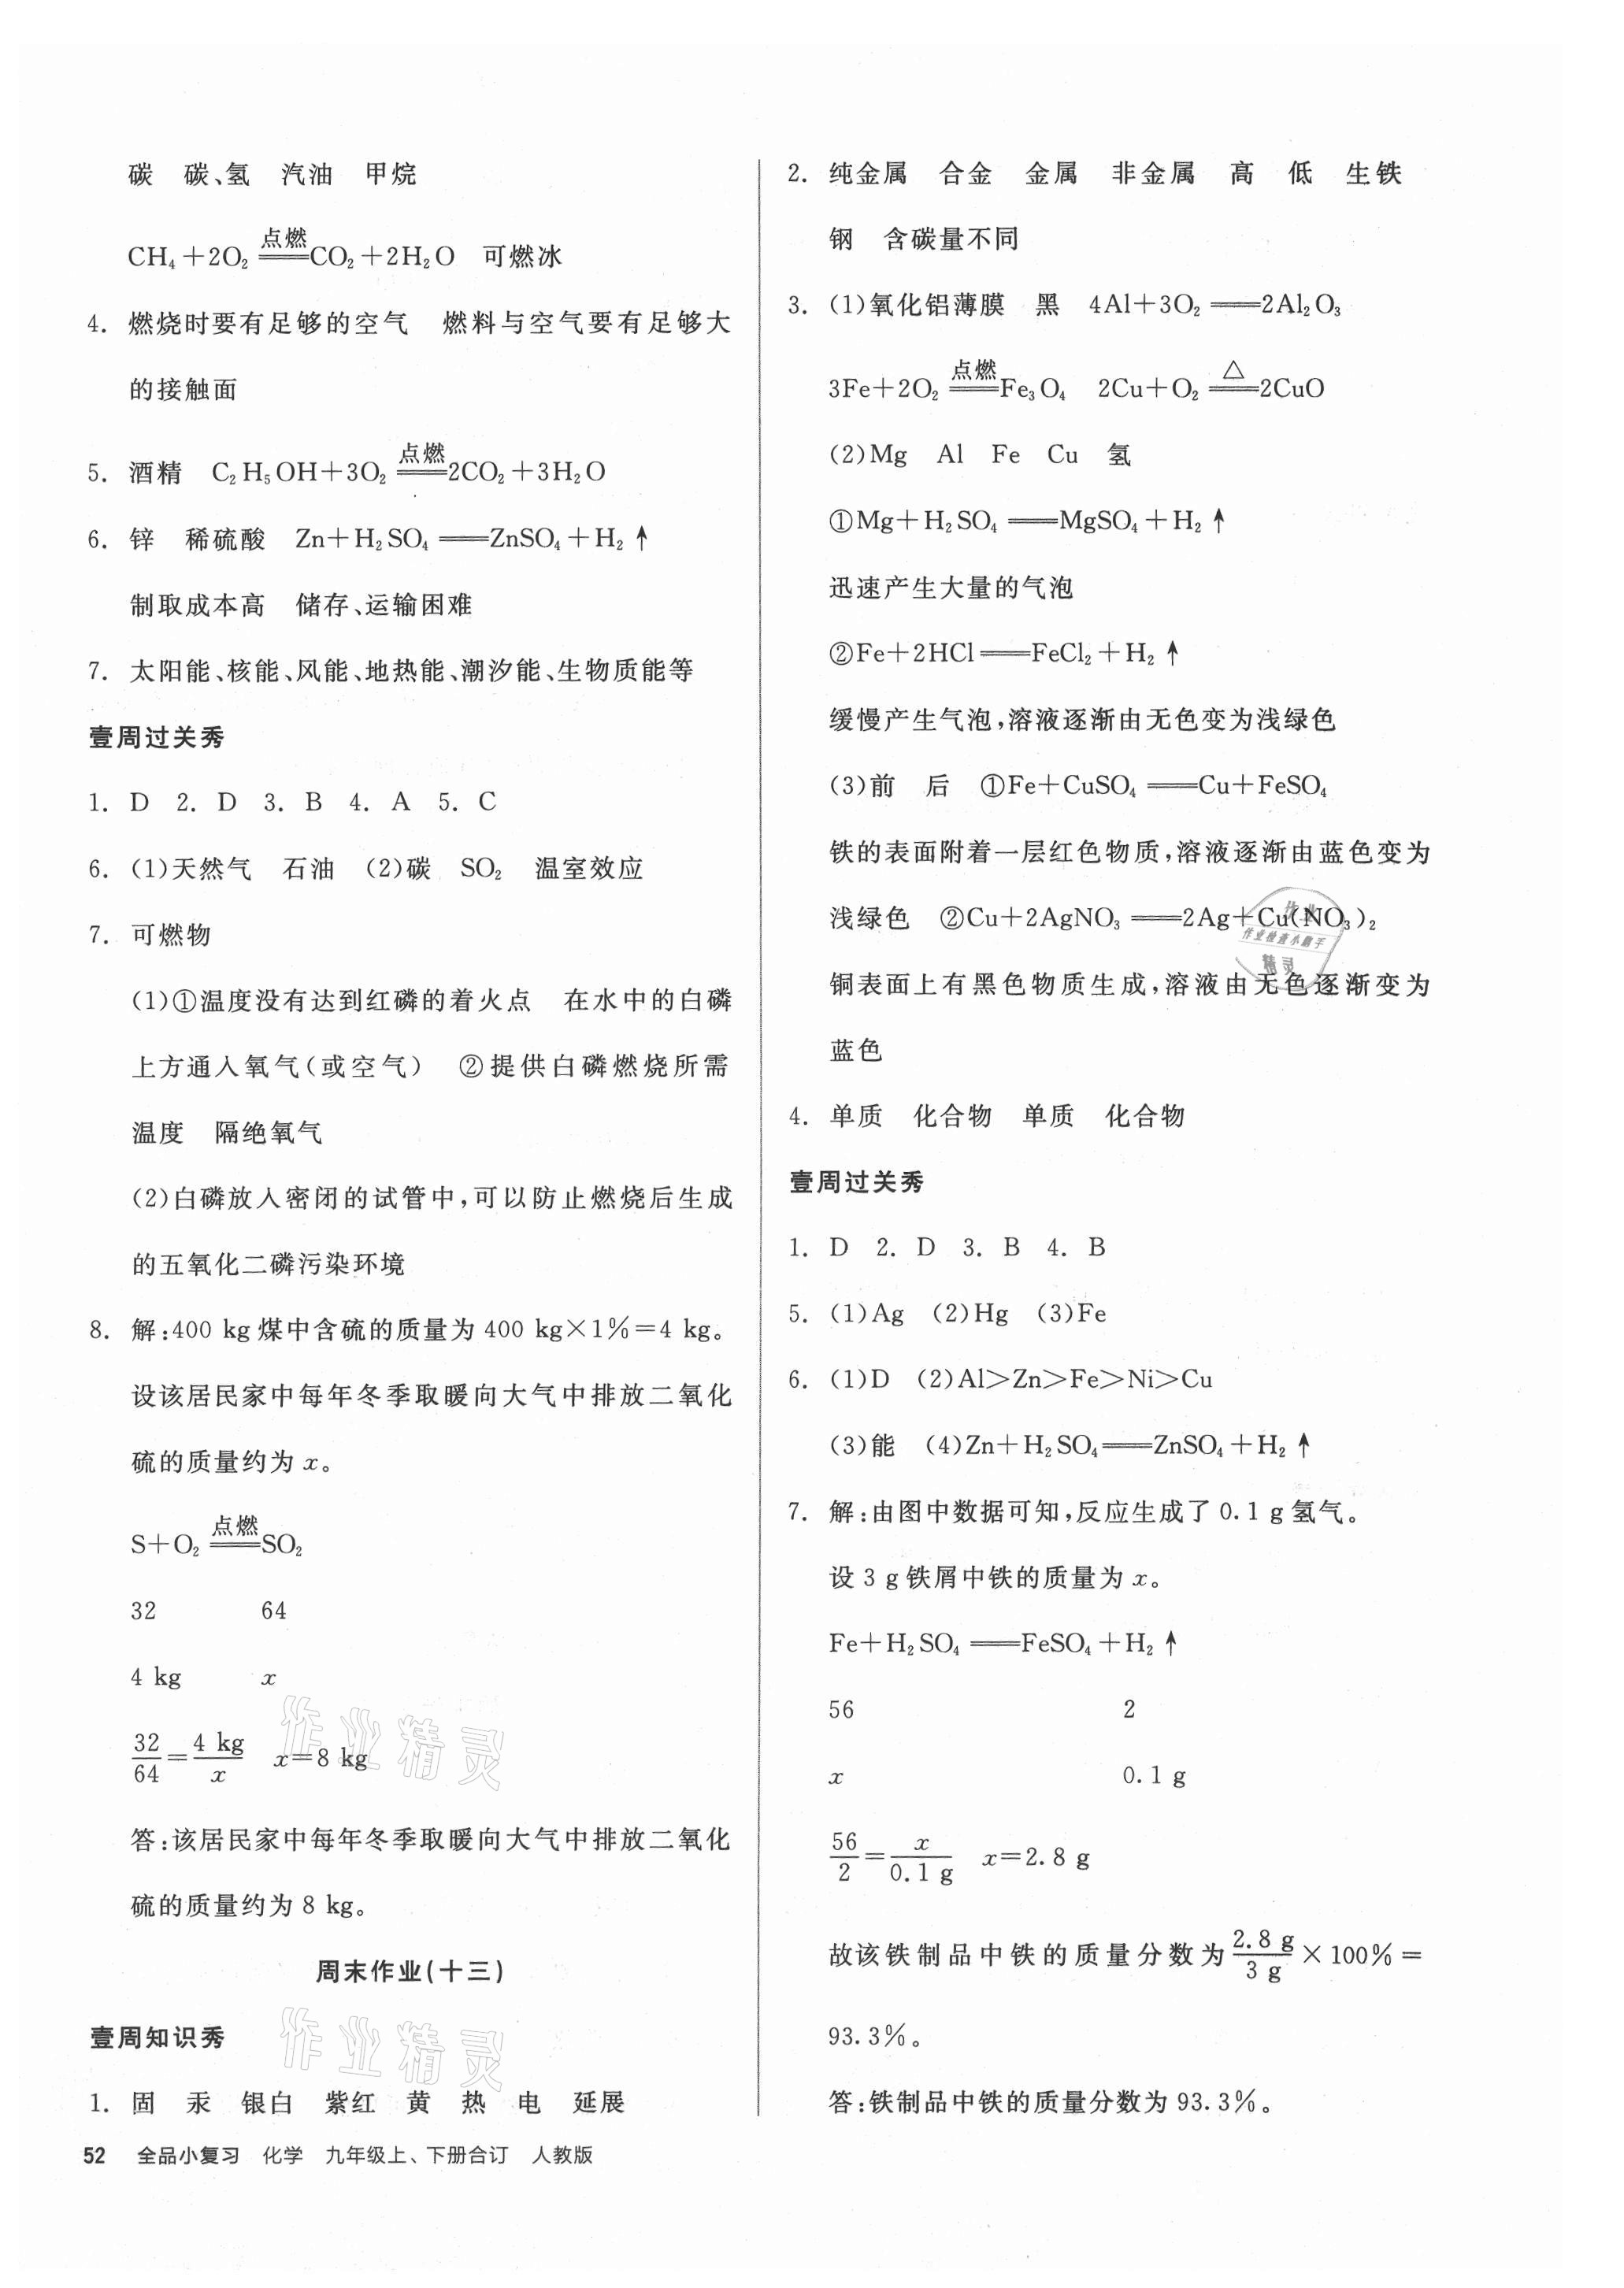 碳　碳、氢　汽油　甲烷
CH₄+2O₂ ══点燃══ CO₂+2H₂O　可燃冰
4. 燃烧时要有足够的空气　燃料与空气要有足够大
的接触面
5. 酒精　C₂H₅OH+3O₂ ══点燃══ 2CO₂+3H₂O
6. 锌　稀硫酸　Zn+H₂SO₄ ══ ZnSO₄+H₂↑
制取成本高　储存、运输困难
7. 太阳能、核能、风能、地热能、潮汐能、生物质能等
壹周过关秀
1. D　2. D　3. B　4. A　5. C
6. (1)天然气　石油　(2)碳　SO₂　温室效应
7. 可燃物
(1)①温度没有达到红磷的着火点　在水中的白磷
上方通入氧气(或空气)　②提供白磷燃烧所需
温度　隔绝氧气
(2)白磷放入密闭的试管中,可以防止燃烧后生成
的五氧化二磷污染环境
8. 解:400 kg煤中含硫的质量为400 kg×1%=4 kg。
设该居民家中每年冬季取暖向大气中排放二氧化
硫的质量约为x。
S+O₂ ══点燃══ SO₂
32　64
4 kg　x
32/64=4 kg/x　x=8 kg
答:该居民家中每年冬季取暖向大气中排放二氧化
硫的质量约为8 kg。
周末作业(十三)
壹周知识秀
1. 固　汞　银白　紫红　黄　热　电　延展
2. 纯金属　合金　金属　非金属　高　低　生铁
钢　含碳量不同
3. (1)氧化铝薄膜　黑　4Al+3O₂ ══ 2Al₂O₃
3Fe+2O₂ ══点燃══ Fe₃O₄　2Cu+O₂ ══△══ 2CuO
(2)Mg　Al　Fe　Cu　氢
①Mg+H₂SO₄ ══ MgSO₄+H₂↑
迅速产生大量的气泡
②Fe+2HCl ══ FeCl₂+H₂↑
缓慢产生气泡,溶液逐渐由无色变为浅绿色
(3)前　后　①Fe+CuSO₄ ══ Cu+FeSO₄
铁的表面附着一层红色物质,溶液逐渐由蓝色变为
浅绿色　②Cu+2AgNO₃ ══ 2Ag+Cu(NO₃)₂
铜表面上有黑色物质生成,溶液由无色逐渐变为
蓝色
4. 单质　化合物　单质　化合物
壹周过关秀
1. D　2. D　3. B　4. B
5. (1)Ag　(2)Hg　(3)Fe
6. (1)D　(2)Al>Zn>Fe>Ni>Cu
(3)能　(4)Zn+H₂SO₄ ══ ZnSO₄+H₂↑
7. 解:由图中数据可知,反应生成了0.1 g氢气。
设3 g铁屑中铁的质量为x。
Fe+H₂SO₄ ══ FeSO₄+H₂↑
56　2
x　0.1 g
56/2=x/0.1 g　x=2.8 g
故该铁制品中铁的质量分数为2.8 g/3 g×100%=
93.3%。
答:铁制品中铁的质量分数为93.3%。
52　全品小复习　化学　九年级上、下册合订　人教版
作业精灵
作业精灵
作业
作业检查小助手
精灵